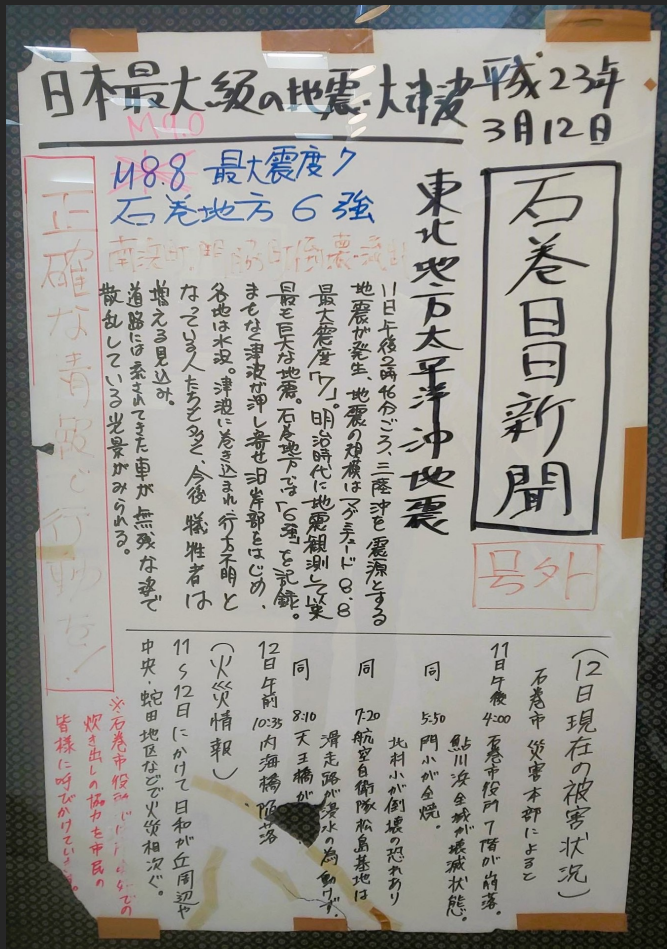 日本最大級の地震・大津波
平成23年
3月12日
石巻日日新聞
号外
M9.0
M8.8 最大震度7
石巻地方 6強
南浜町、門脇町倒壊・流出
東北地方太平洋沖地震
11日午後2時46分ごろ、三陸沖を震源とする
地震が発生、地震の規模はマグニチュード8.8
最大震度「7」。明治時代に地震観測して以
最も巨大な地震。石巻地方では「6強」を記録。
まもなく津波が押し寄せ沿岸部をはじめ、
各地は水没。津波に巻き込まれ行方不明と
なっている人たちも多く、今後犠牲者は
増える見込み。
道路には流されてきた車が無残な姿で
散乱している光景がみられる。
正確な情報で行動を!
(12日現在の被害状況)
石巻市 災害本部によると
11日午後4:00 石巻市役所7階が崩落。
鮎川浜全域が壊滅状態。
同 5:50 門小が全焼。
北村小が倒壊の恐れあり
同 7:20 航空自衛隊松島基地は
滑走路が浸水の為動けず。
同 8:10 天王橋が
12日午前10:35 内海橋陥落
(火災情報)
11〜12日にかけて日和が丘周辺や
中央・蛇田地区などで火災相次ぐ。
※石巻市役所
での
炊き出しの協力を市民の
皆様に呼びかけています。